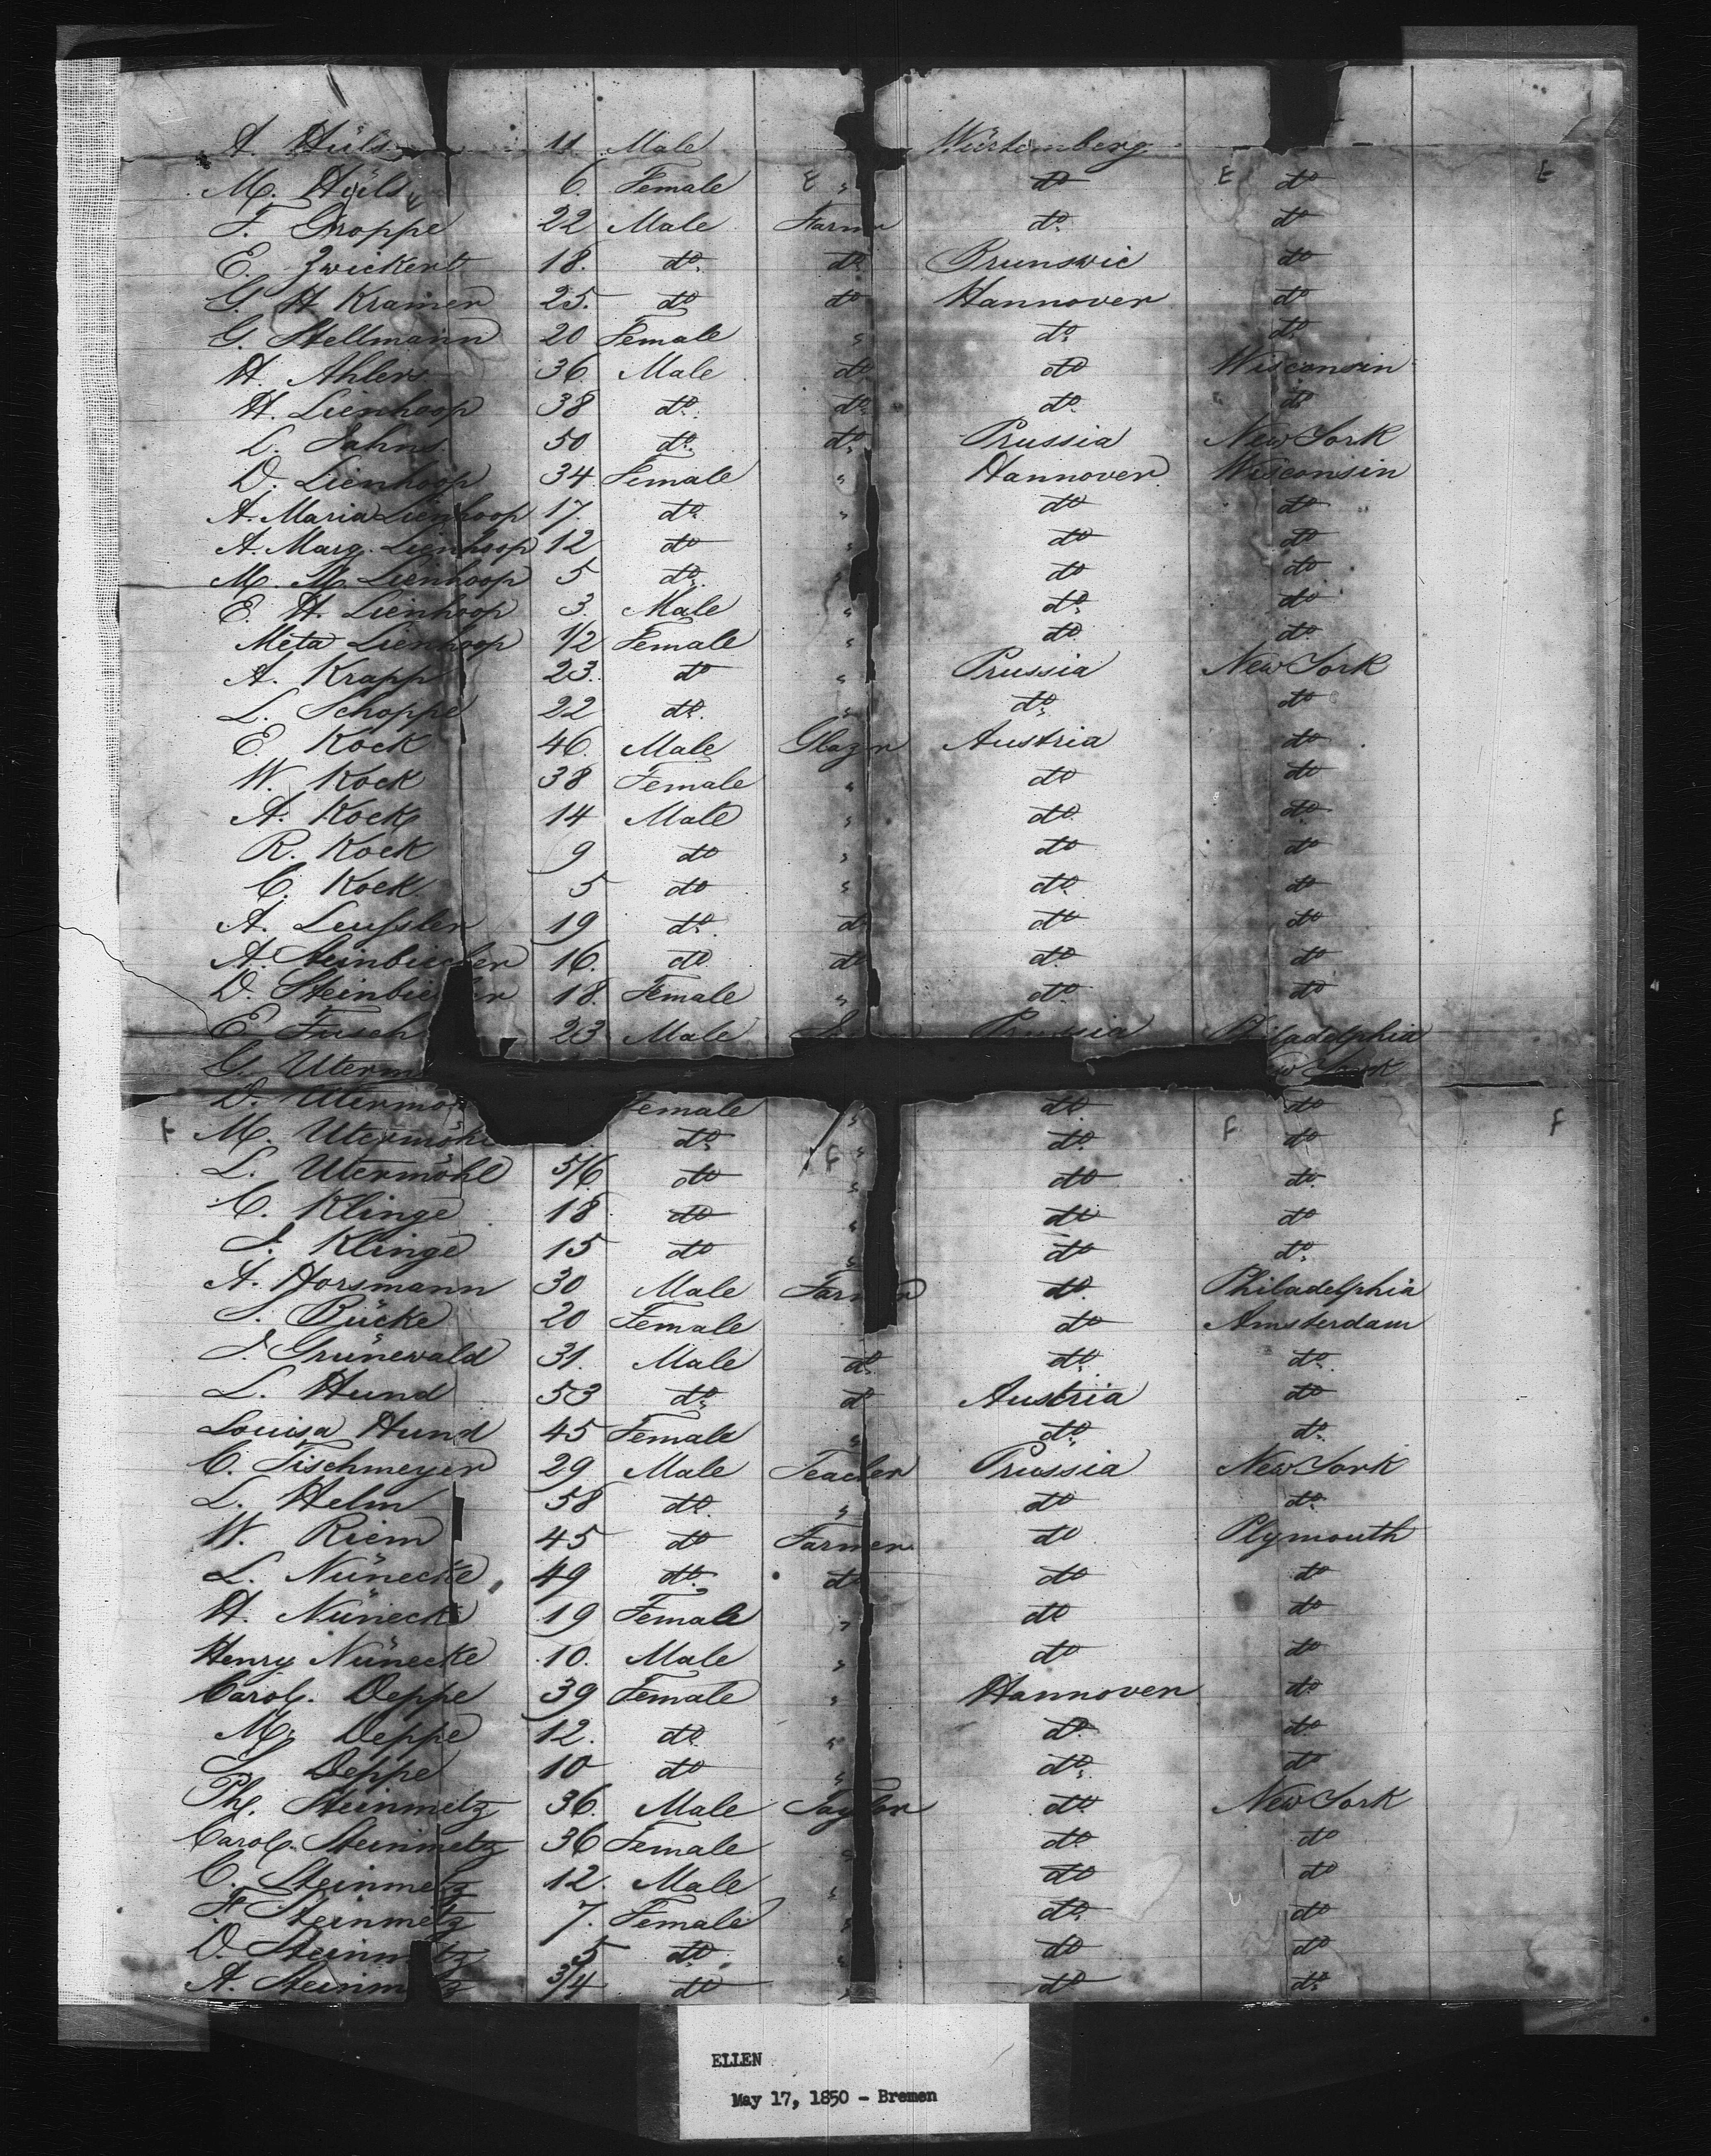 A. Hüls 11. Male Würtemberg
M. Hüls 6. Female E " do E do E
F. Groppe 22 Male Farm do do
E. Zwickert 18. do. do. Brunswic do
G. H Kramer 25. do do Hannover do
G. Stellmann 20 Female " do do
H. Ahlers 36. Male do do Wisconsin
H. Lienhoop 38 do. do. do. " do
L. Jahns 50 do. do. Prussia New York
D. Lienhoop 34. Female " Hannover Wisconsin
A. Maria Lienhoop 17. do. " do do
A. Marg. Lienhoop 12 do " do do
M. M. Lienhoop 5 do. " do do
E. H. Lienhoop 3. Male " do. do
Meta Lienhoop 1/2 Female " do. do
A. Krapp 23. do " Prussia New York
L. Schoppe 22 do. " do. do
E. Kock 46. Male Glazr Austria do
W. Kock 38 Female " do do
A. Kock 14 Male " do do
R. Kock 9 do " do do
C. Kock 5 do " do. do
A. Leußler 19 do. d do. do
A. Steinbie ler 16. do do do. do
D. Steinbie er 18. Female " do. do
E. Frisch 23 Male P ssia Philadelphia
G. Uterm w York
D. Utermö emale " do. do
M. Utermöhl do. " do. do
F F F F
L. Utermöhl 5/6 do " do do
C. Klinge 18 do " do do
J. Klinge 15 do " do do.
A. Horsmann 30 Male Far r do. Philadelphia
S. Bücke 20 Female do Amsterdam
J. Grünewald 31. Male do. do. do.
L. Hund 53 do. d Austria do
Louisa Hund 45 Female " do. do.
C. Tischmeyer 29 Male Teacher Prussia New York
L. Helm 58 do. " do do.
W. Riem 45 do Farmer do Plymouth
L. Nünecke 49 do. do do do
H. Nünecke 19 Female " do do
Henry Nünecke 10. Male " do do
Carol. Deppe 39 Female " Hannover do
M. Deppe 12. do. " do. do
S. Deppe 10 do " do. do
Ph. Steinmetz 36. Male Taylor do. New York
Carol. Steinmetz 36 Female " do. do
C. Steinmetz 12. Male " do do
F. Steinmetz 7. Female " do. do
D. Steinm tz 5 do. " do do
A. Steinm z 3/4 do " do do.
ELLEN
May 17, 1850 - Bremen